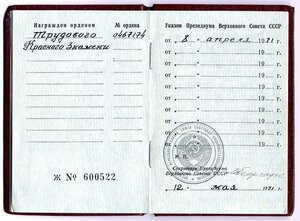 Награжден орденом № ордена
Трудового 0467174
Красного Знамени
Ж № 600522
Указом Президиума Верховного Совета СССР
от „ 8 “ апреля 1971 г.
от „ “ 19 г.
от „ “ 19 г.
от „ “ 19 г.
от „ “ 19 г.
от „ “ 19 г.
от „ “ 19 г.
от „ “ 19 г.
М. П.
Секретарь Президиума
Верховного Совета СССР
„ 12 “ мая 1971 г.